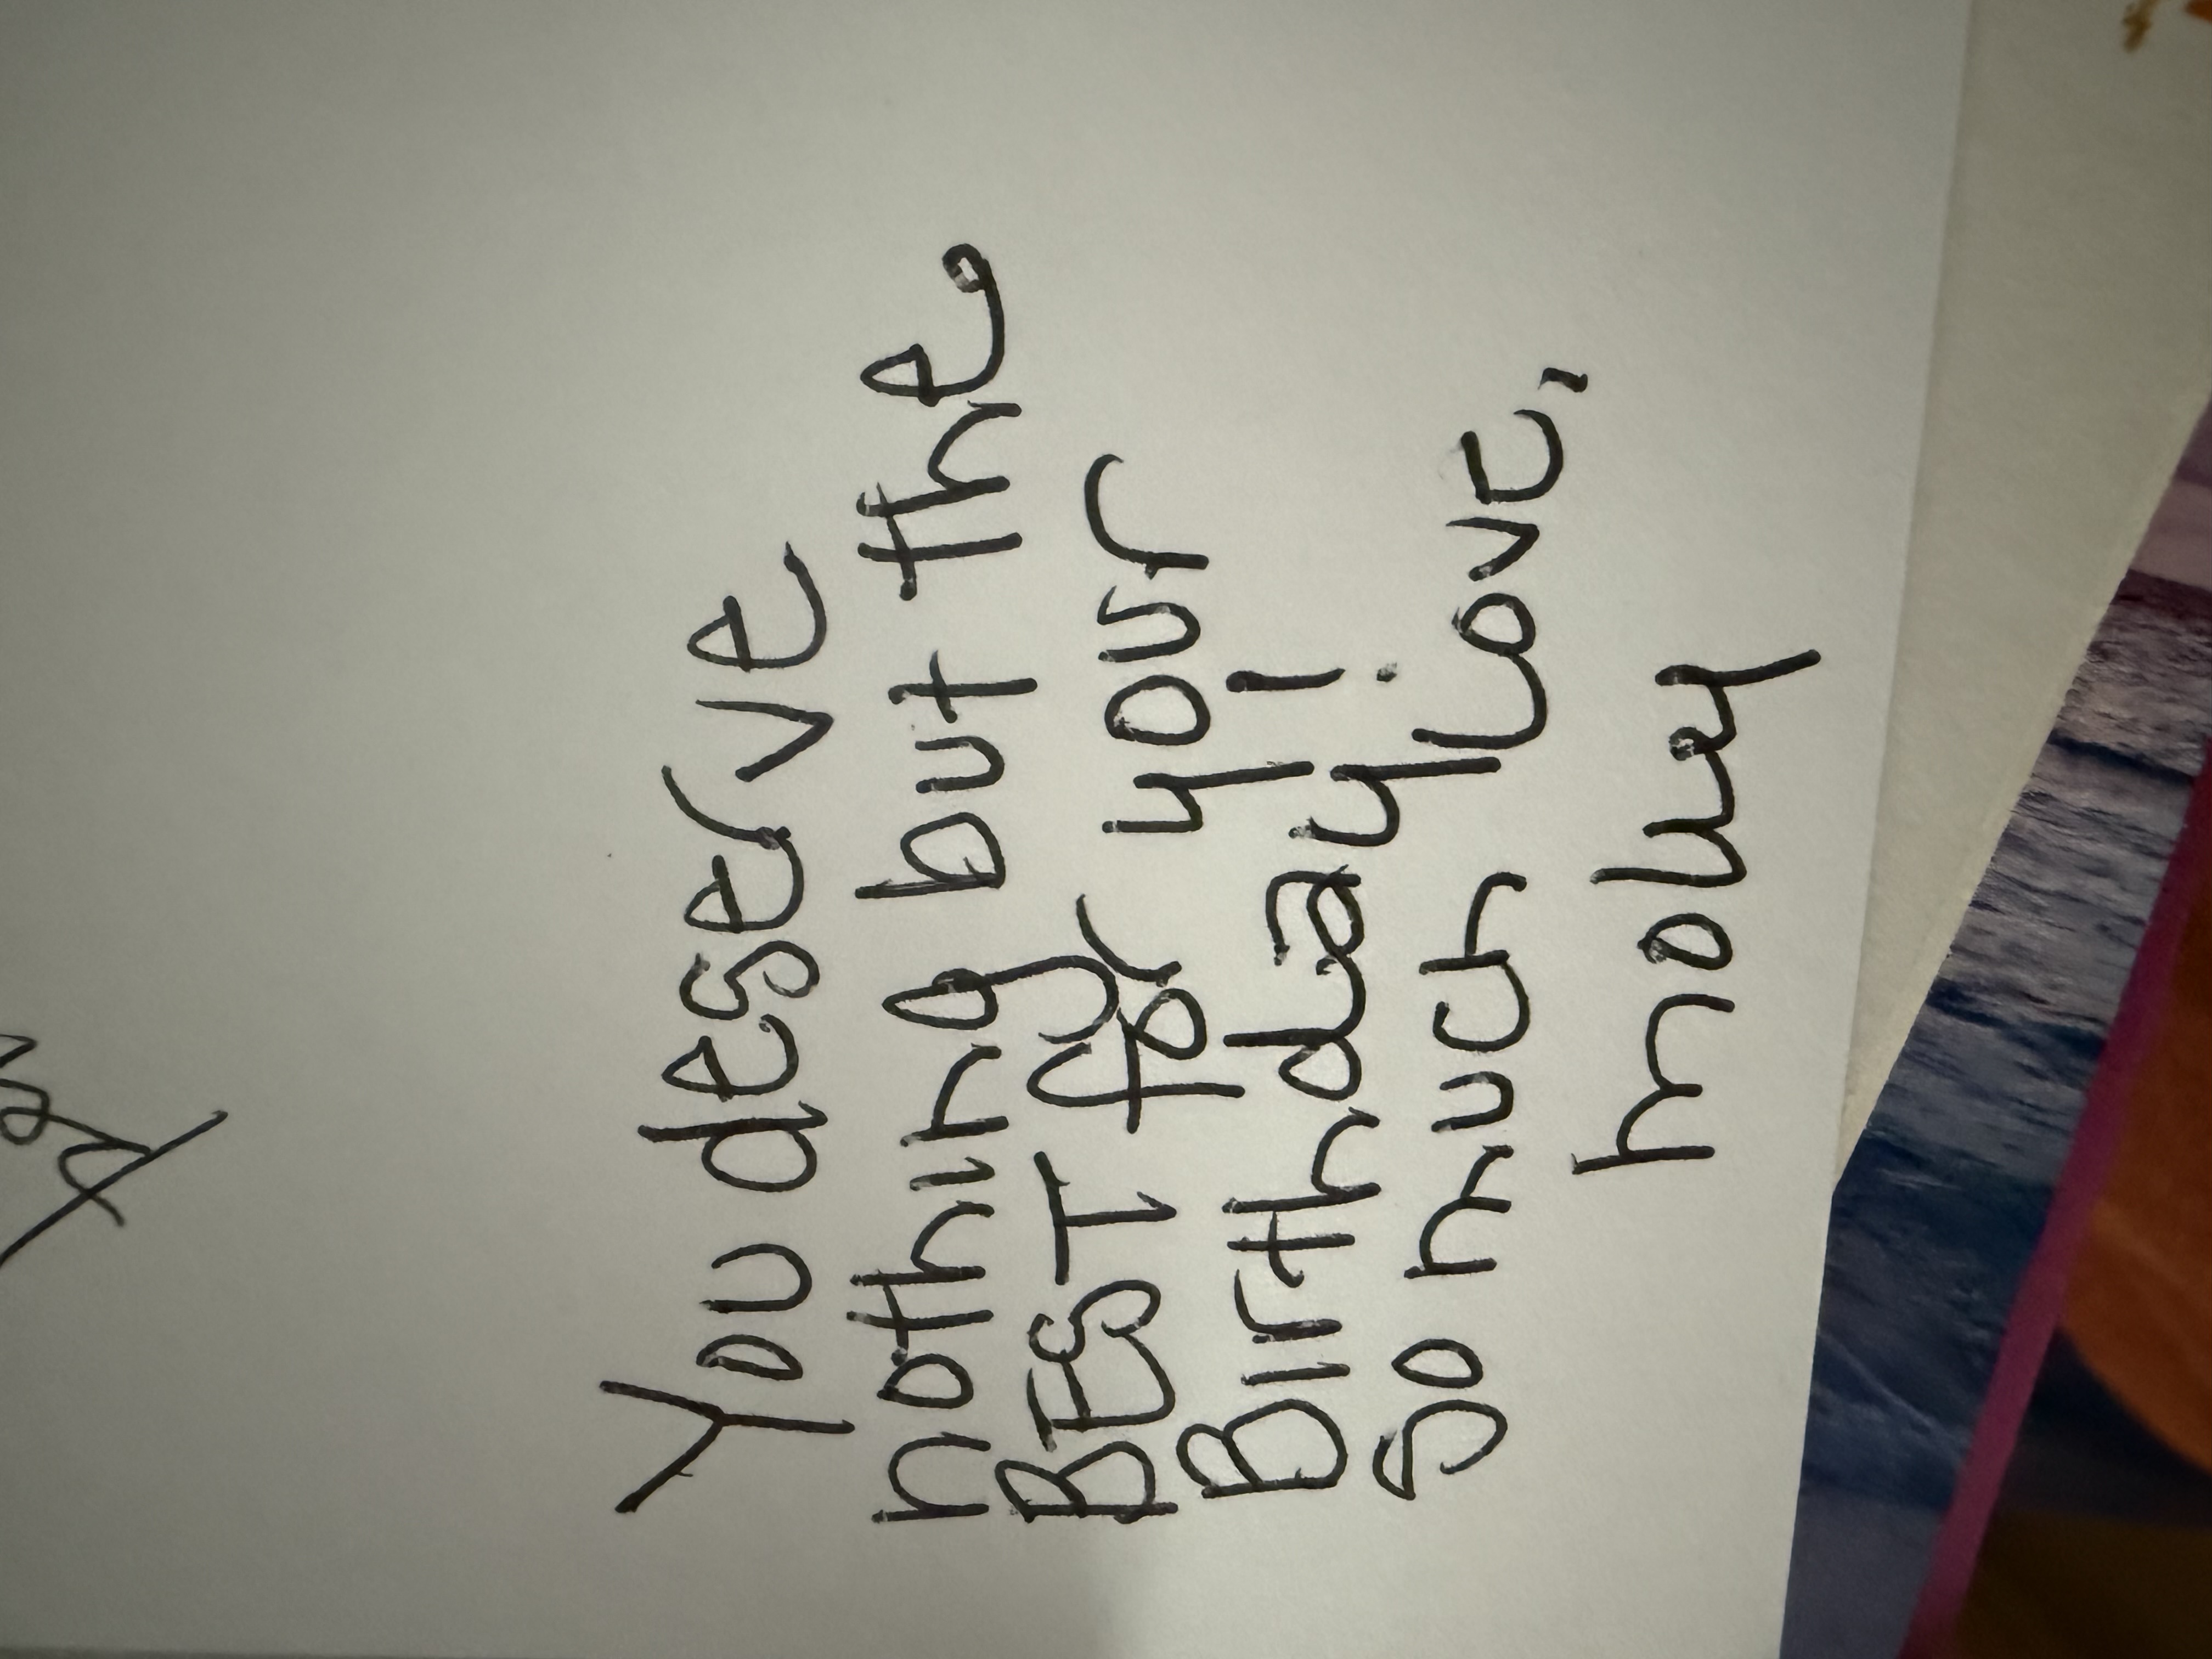 You deserve
nothing but the
BEST for your
Birthday!
So much Love,
molly